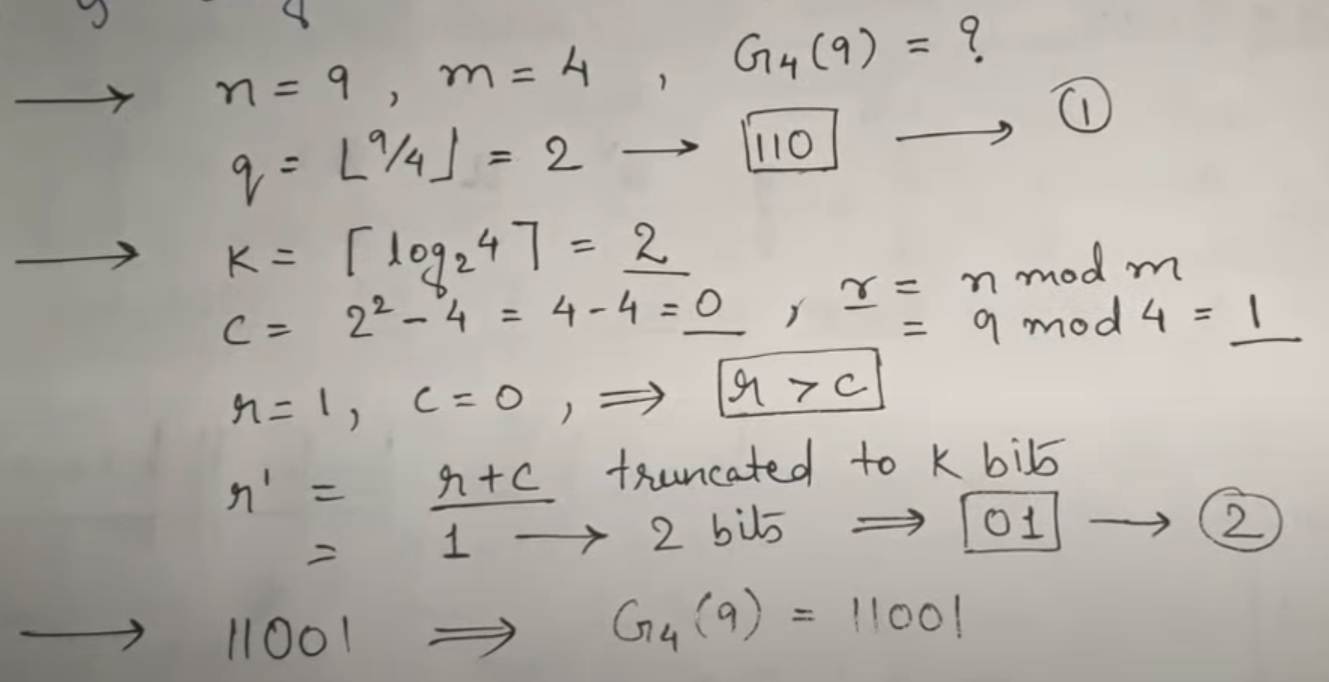 → n = 9 , m = 4 , G₄(9) = ?
q = ⌊9/4⌋ = 2 → 110 → ①
→ K = ⌈log₂4⌉ = 2
C = 2² - 4 = 4 - 4 = 0 , r = n mod m
= 9 mod 4 = 1
r = 1, C = 0 , ⇒ r > c
r' = r + C truncated to K bits
= 1 → 2 bits ⇒ 01 → ②
→ 11001 ⇒ G₄(9) = 11001